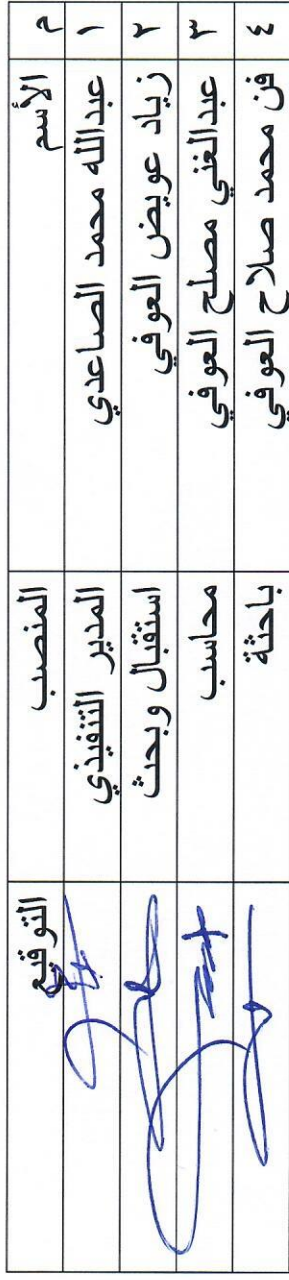 م الأسم المنصب التوقيع
١ عبدالله محمد الصاعدي المدير التنفيذي
٢ زياد عويض العوفي استقبال وبحث
٣ عبدالغني مصلح العوفي محاسب
٤ فن محمد صلاح العوفي باحثة